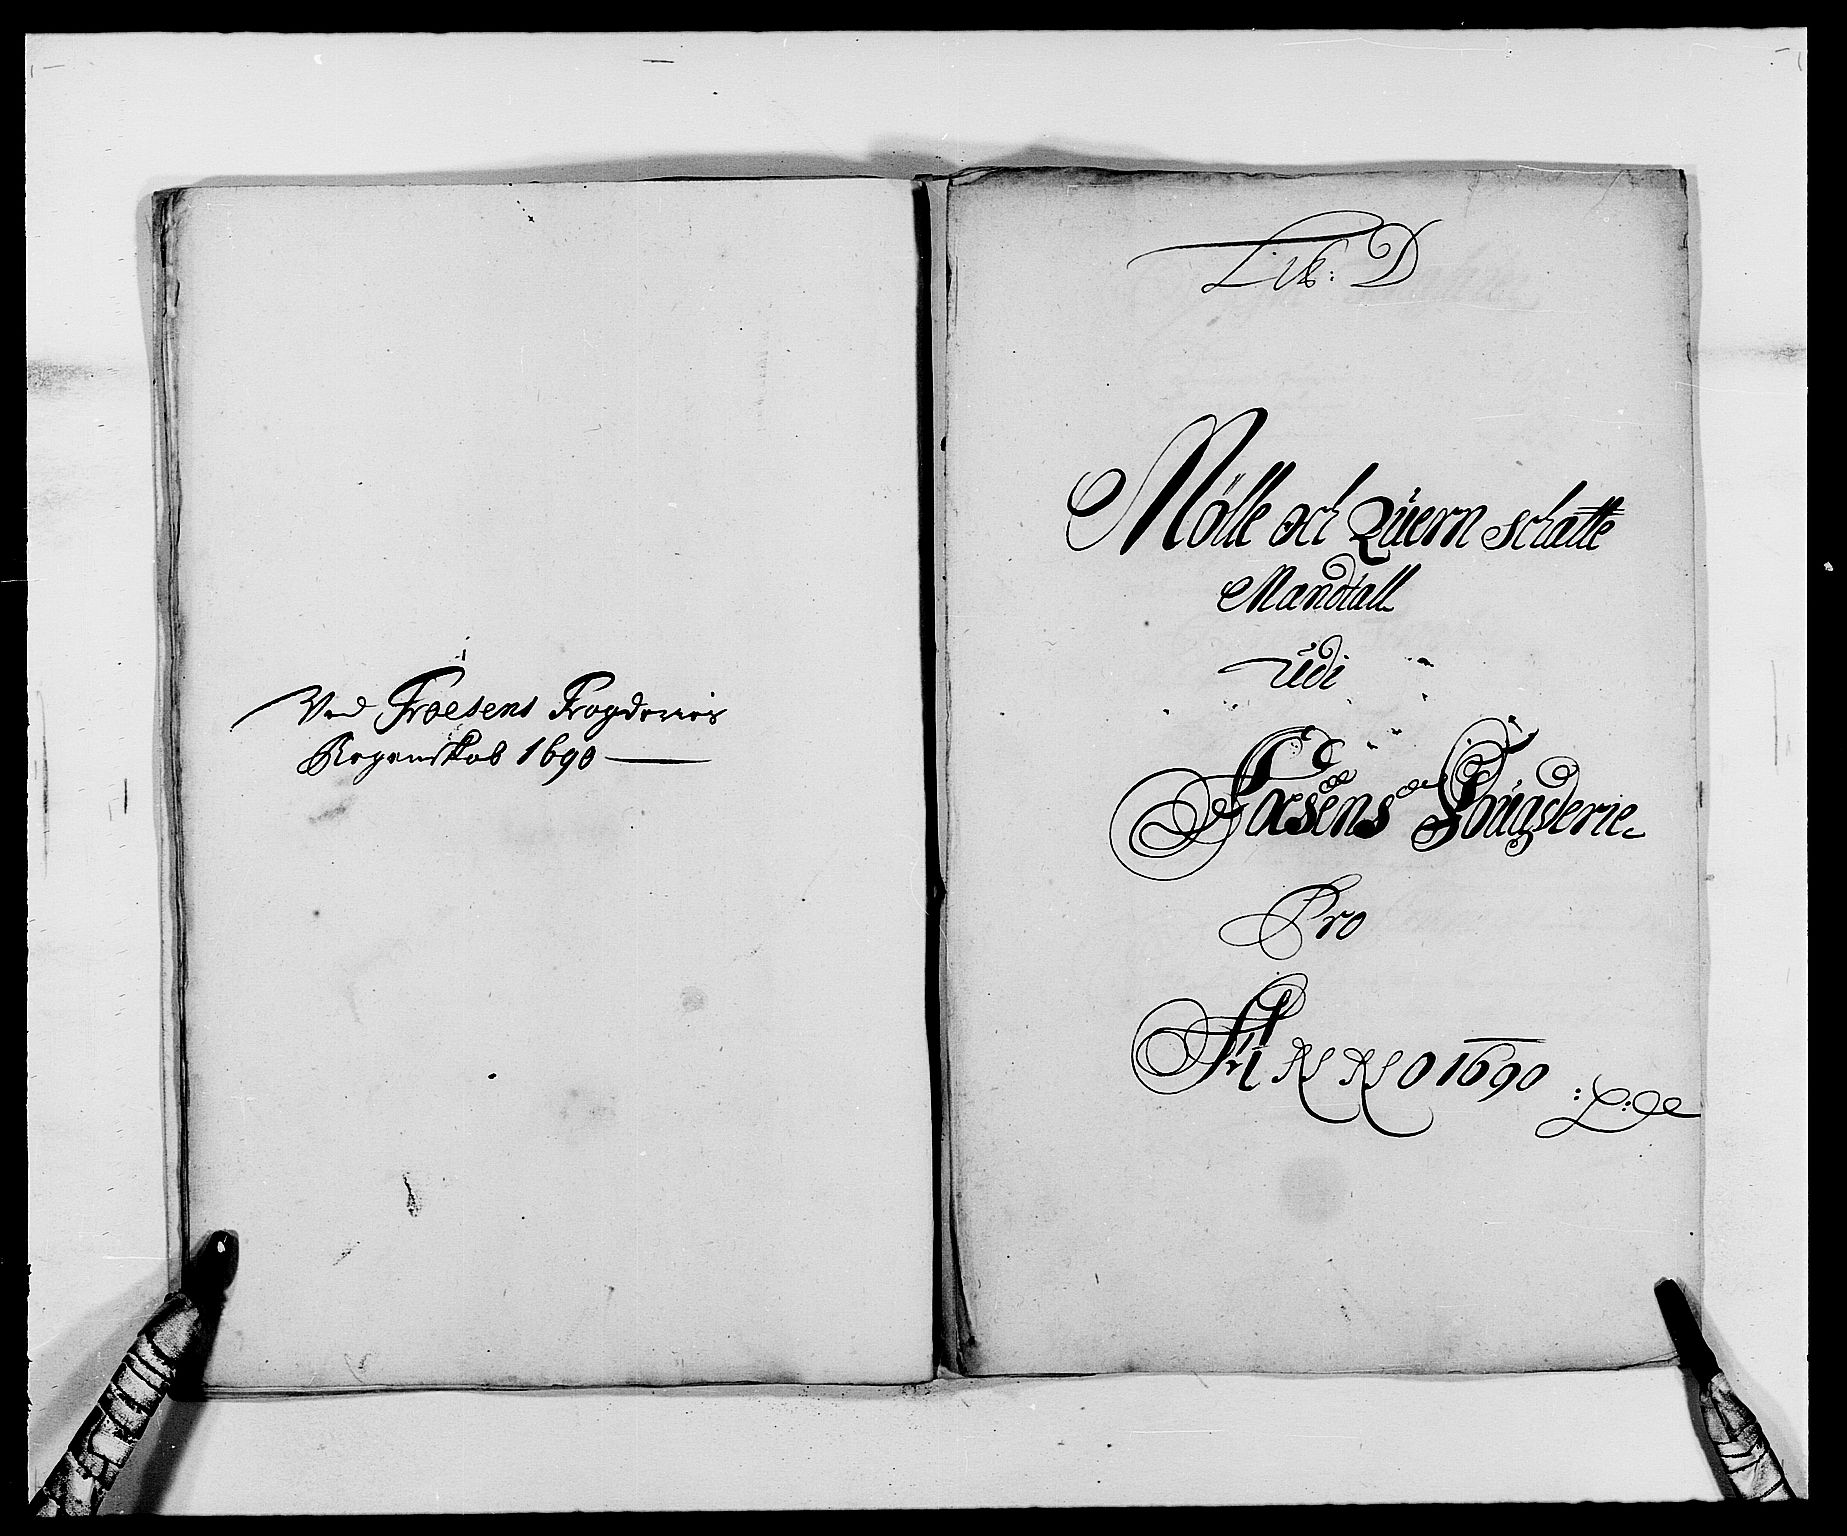 Ved Froesens Fogderies
Regenskab 1690
Lit: D
Mölle och Quern schatte
Mandtall
udi
Foesens Fougderie
Pro
ANNO 1690